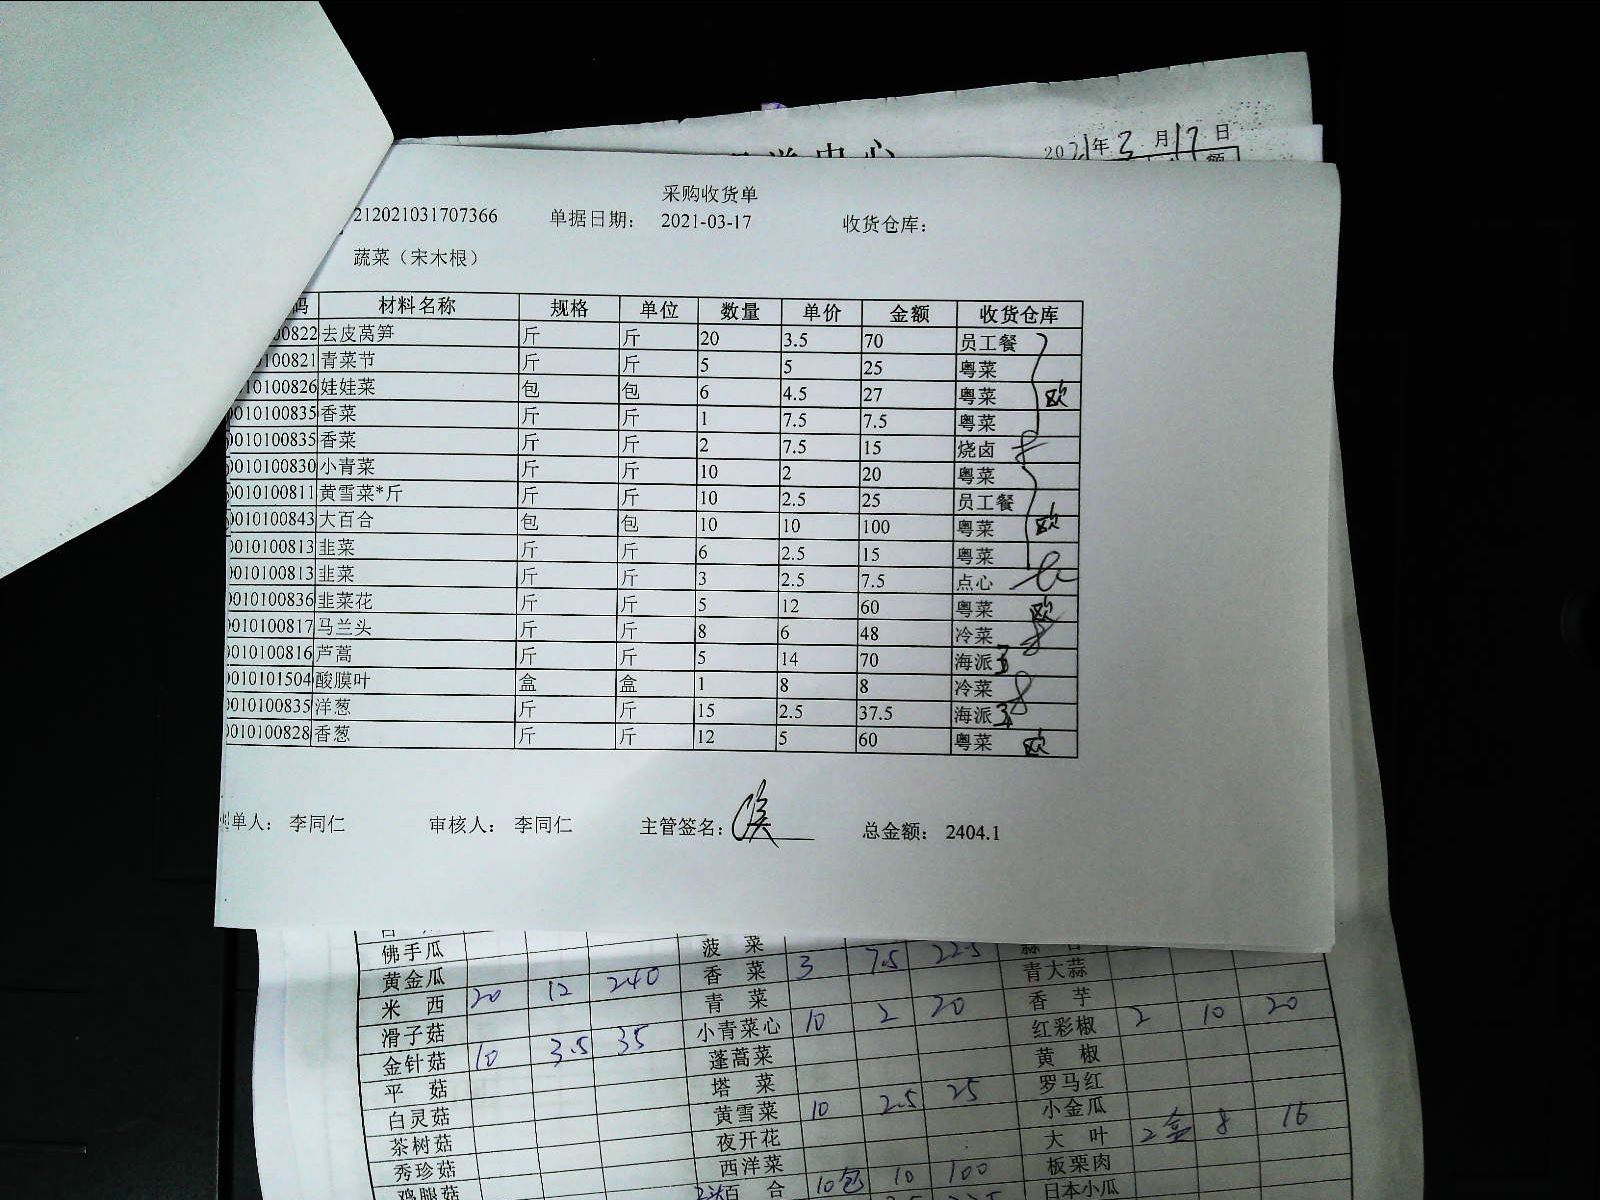 2021年3月17日
采购收货单
212021031707366 单据日期： 2021-03-17 收货仓库：
蔬菜（宋木根）
码 材料名称 规格 单位 数量 单价 金额 收货仓库
00822 去皮莴笋 斤 斤 20 3.5 70 员工餐
100821 青菜节 斤 斤 5 5 25 粤菜
10100826 娃娃菜 包 包 6 4.5 27 粤菜 欧
0010100835 香菜 斤 斤 1 7.5 7.5 粤菜
0010100835 香菜 斤 斤 2 7.5 15 烧卤
0010100830 小青菜 斤 斤 10 2 20 粤菜
0010100811 黄雪菜*斤 斤 斤 10 2.5 25 员工餐
0010100843 大百合 包 包 10 10 100 粤菜 欧
0010100813 韭菜 斤 斤 6 2.5 15 粤菜
0010100813 韭菜 斤 斤 3 2.5 7.5 点心
0010100836 韭菜花 斤 斤 5 12 60 粤菜 欧
0010100817 马兰头 斤 斤 8 6 48 冷菜
0010100816 芦蒿 斤 斤 5 14 70 海派
0010101504 酸膜叶 盒 盒 1 8 8 冷菜
0010100835 洋葱 斤 斤 15 2.5 37.5 海派
0010100828 香葱 斤 斤 12 5 60 粤菜 欧
单人： 李同仁 审核人： 李同仁 主管签名： 总金额： 2404.1
佛手瓜 菠菜
黄金瓜 香菜 3 7.5 22.5 青大蒜
米西 20 12 240 青菜 香芋
滑子菇 小青菜心 10 2 20 红彩椒 2 10 20
金针菇 10 3.5 35 蓬蒿菜 黄椒
平菇 塔菜 罗马红
白灵菇 黄雪菜 10 2.5 25 小金瓜
茶树菇 夜开花 大叶 2盒 8 16
秀珍菇 西洋菜 板栗肉
鸡腿菇 百合 10包 10 100 日本小瓜